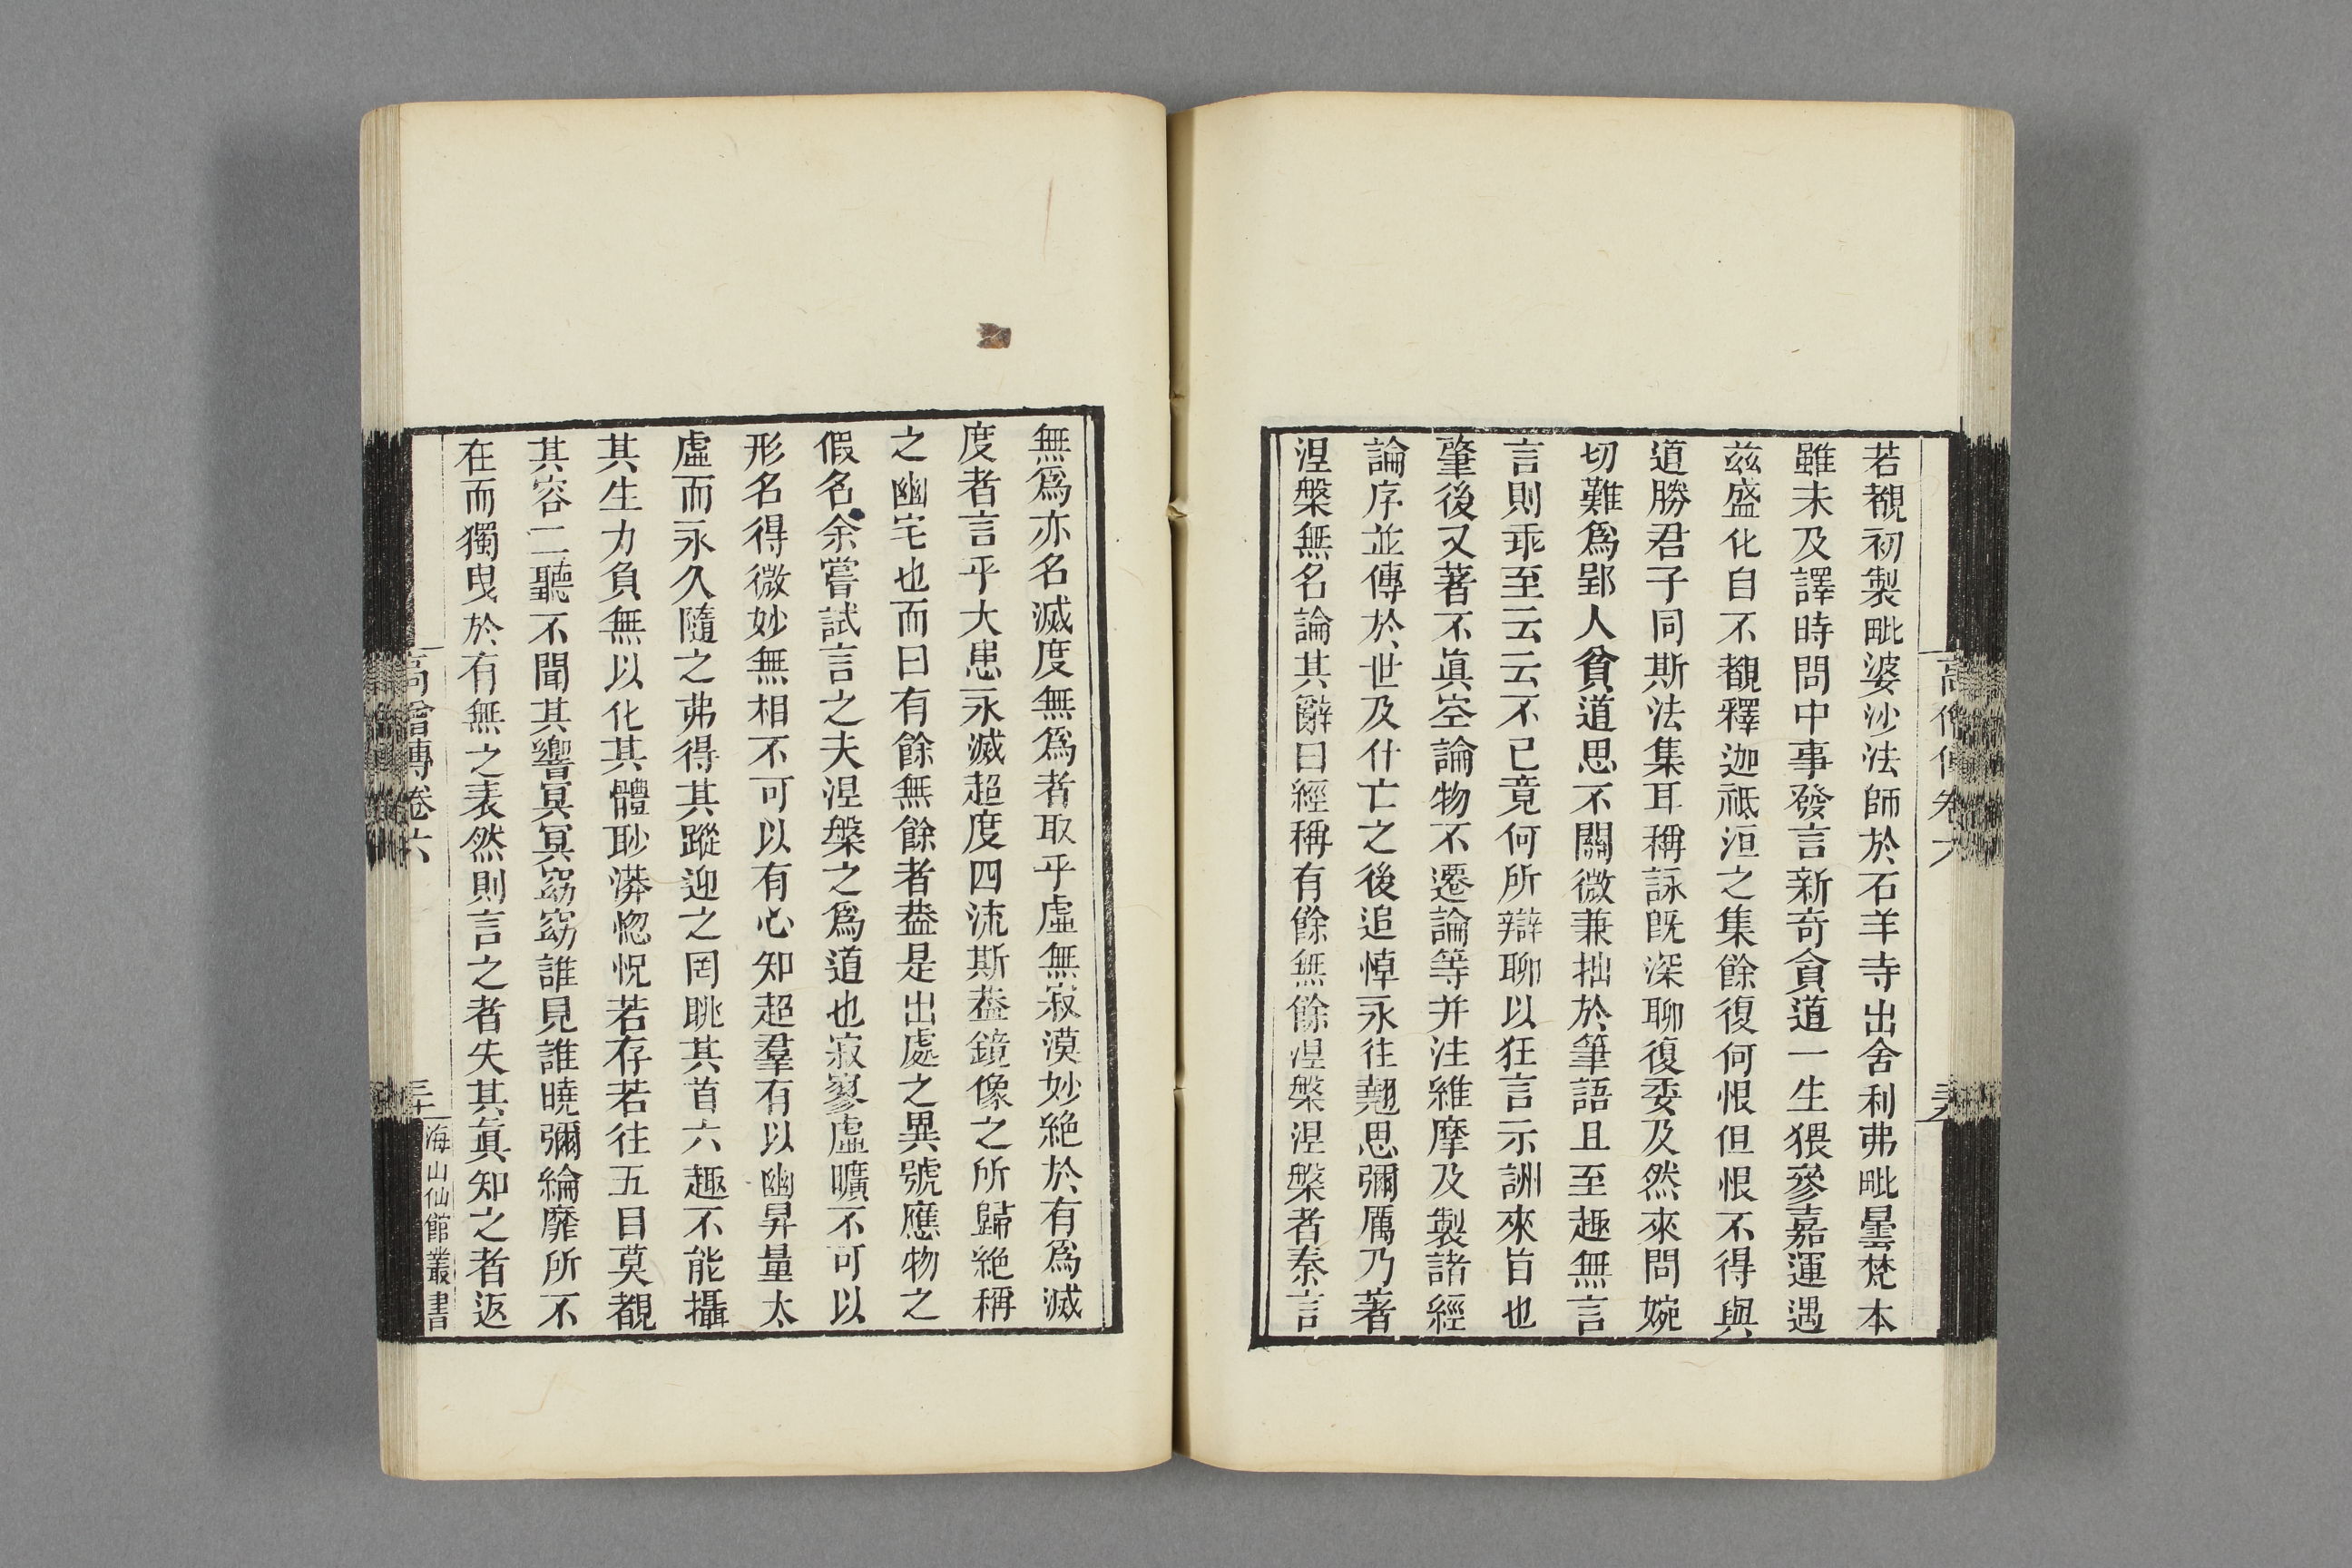 若覩初製毗婆沙法師於石羊寺出舍利弗毗曇梵本
雖未及譯時問中事發言新奇貧道一生猥參嘉運遇
茲盛化自不覩釋迦祗洹之集餘復何恨但恨不得與
道勝君子同斯法集耳稱詠既深聊復委及然來問婉
切難爲郢人貧道思不關微兼拙於筆語且至趣無言
言則乖至云云不已竟何所辯聊以狂言示詶來旨也
肇後又著不眞空論物不遷論等并注維摩及製諸經
論序並傳於世及什亡之後追悼永往翹思彌厲乃著
涅槃無名論其辭曰經稱有餘無餘涅槃涅槃者秦言
無爲亦名滅度無爲者取乎虛無寂漠妙絶於有爲滅
度者言乎大患永滅超度四流斯葢鏡像之所歸絶稱
之幽宅也而曰有餘無餘者葢是出處之異號應物之
假名余嘗試言之夫涅槃之爲道也寂寥虛曠不可以
形名得微妙無相不可以有心知超羣有以幽昇量太
虛而永久隨之弗得其蹤迎之罔眺其首六趣不能攝
其生力負無以化其體眇漭惚怳若存若往五目莫覩
其容二聽不聞其響冥冥窈窈誰見誰曉彌綸靡所不
在而獨曳於有無之表然則言之者失其眞知之者返
高僧傳卷六
三十
海山仙館叢書